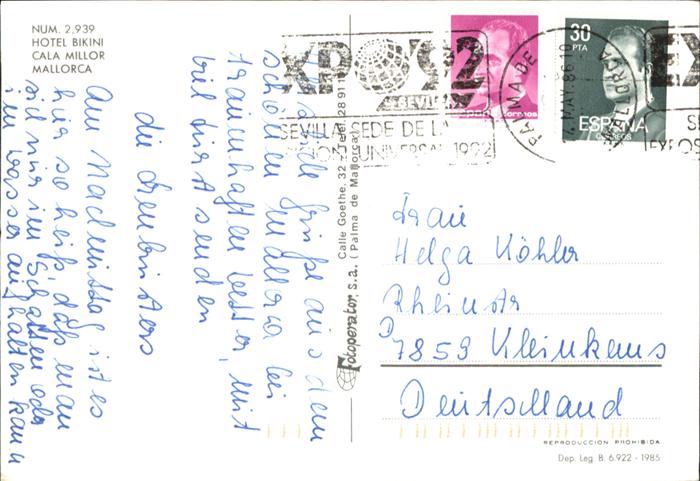 NUM. 2.939
HOTEL BIKINI
CALA MILLOR
MALLORCA
Grüße aus dem
schönen Mallorca bei
traumhaften Wetter, mit
viel
senden
die
Am Nachmittag ist es
hier so heiß, daß man
sich nur im Schatten oder
im Wasser aufhalten kann
Calle Goethe, 32 - Telef. 28 91
Fotoperator, s.a. (Palma de Mallorca)
EXPO '92
SEVILLA
SEVILLA SEDE DE LA
EXPOSICION UNIVERSAL 1992
PALMA DE MALLORCA
MAY. 86
correos
30
PTA
ESPAÑA
CORREOS
Frau
Helga Köhler
Rheinstr
D
7859 Kleinkems
Deutschland
REPRODUCCION PROHIBIDA
Dep. Leg. B. 6.922 - 1985